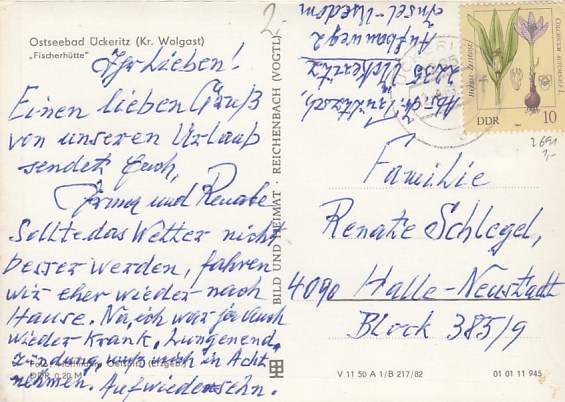 Ostseebad Ückeritz (Kr. Wolgast)
„Fischerhütte"
Ihr Lieben!
Einen lieben Gruß
von unseren Urlaub
sendet Euch,
Irma und Renate
Sollte das Wetter nicht
besser werden, fahren
wir eher wieder nach
Hause. Na, ich war ja auch
wieder krank, Lungenend,
zündung muß mich in Acht
nehmen. Aufwiedersehn.
DDR 0,20 M
BILD UND HEIMAT · REICHENBACH (VOGTL)
2.-
Abs.
2235 Ückeritz
Aufbauweg 2
Insel-Usedom
DDR
10
Familie
Renate Schlegel,
4090 Halle-Neustadt
Block 385/9
V 11 50 A 1/B 217/82
01 01 11 945